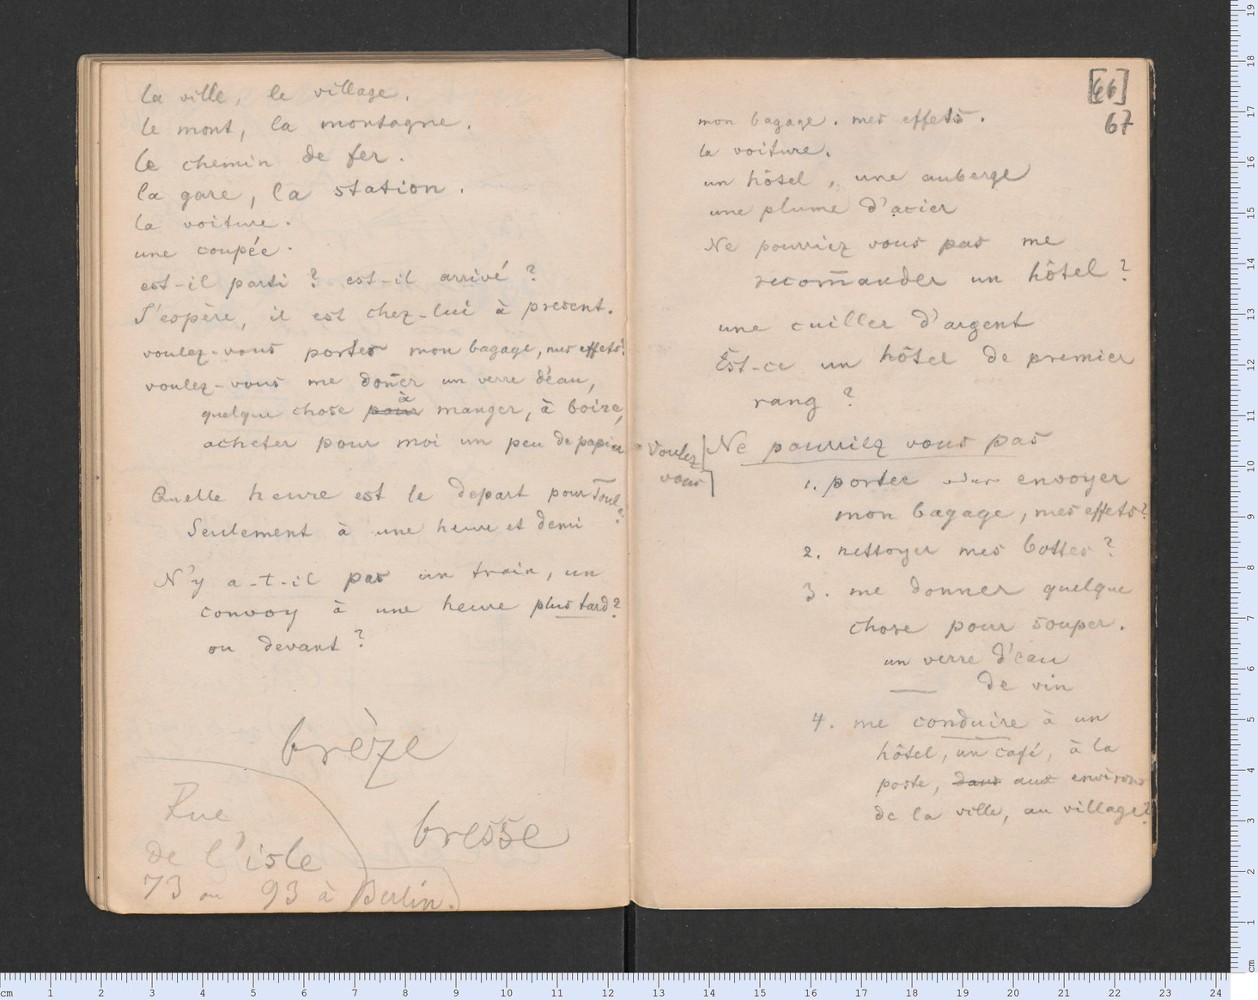 la ville, le village.
le mont, la montagne.
le chemin de fer.
la gare, la station.
la voiture.
une coupée.
est-il parti? est-il arrivé?
J'espère, il est chez-lui à present.
voulez-vous porter mon bagage, mes effets?
voulez-vous me doner un verre d'eau,
quelque chose pour à manger, à boire,
acheter pour moi un peu de papier
Quelle heure est le depart pour Toul?
Seulement à une heure et demi
N'y a-t-il pas un train, un
convoy à une heure plus tard?
ou devant?
brèze
bresse
Rue
de l'isle
73 ou 93 à Berlin.
[66]
67
mon bagage. mes effets.
la voiture.
un hôtel, une auberge
une plume d'acier
Ne pourriez vous pas me
recom̄ander un hôtel?
une cuiller d'argent
Est-ce un hôtel de premier
rang?
Voulez
vous
Ne pourriez vous pas
1. porter envoyer
mon bagage, mes effets?
2. nettoyer mes bottes?
3. me donner quelque
chose pour souper.
un verre d'eau
— de vin
4. me conduire à un
hôtel, un café, à la
poste, dans aux environs
de la ville, au village?